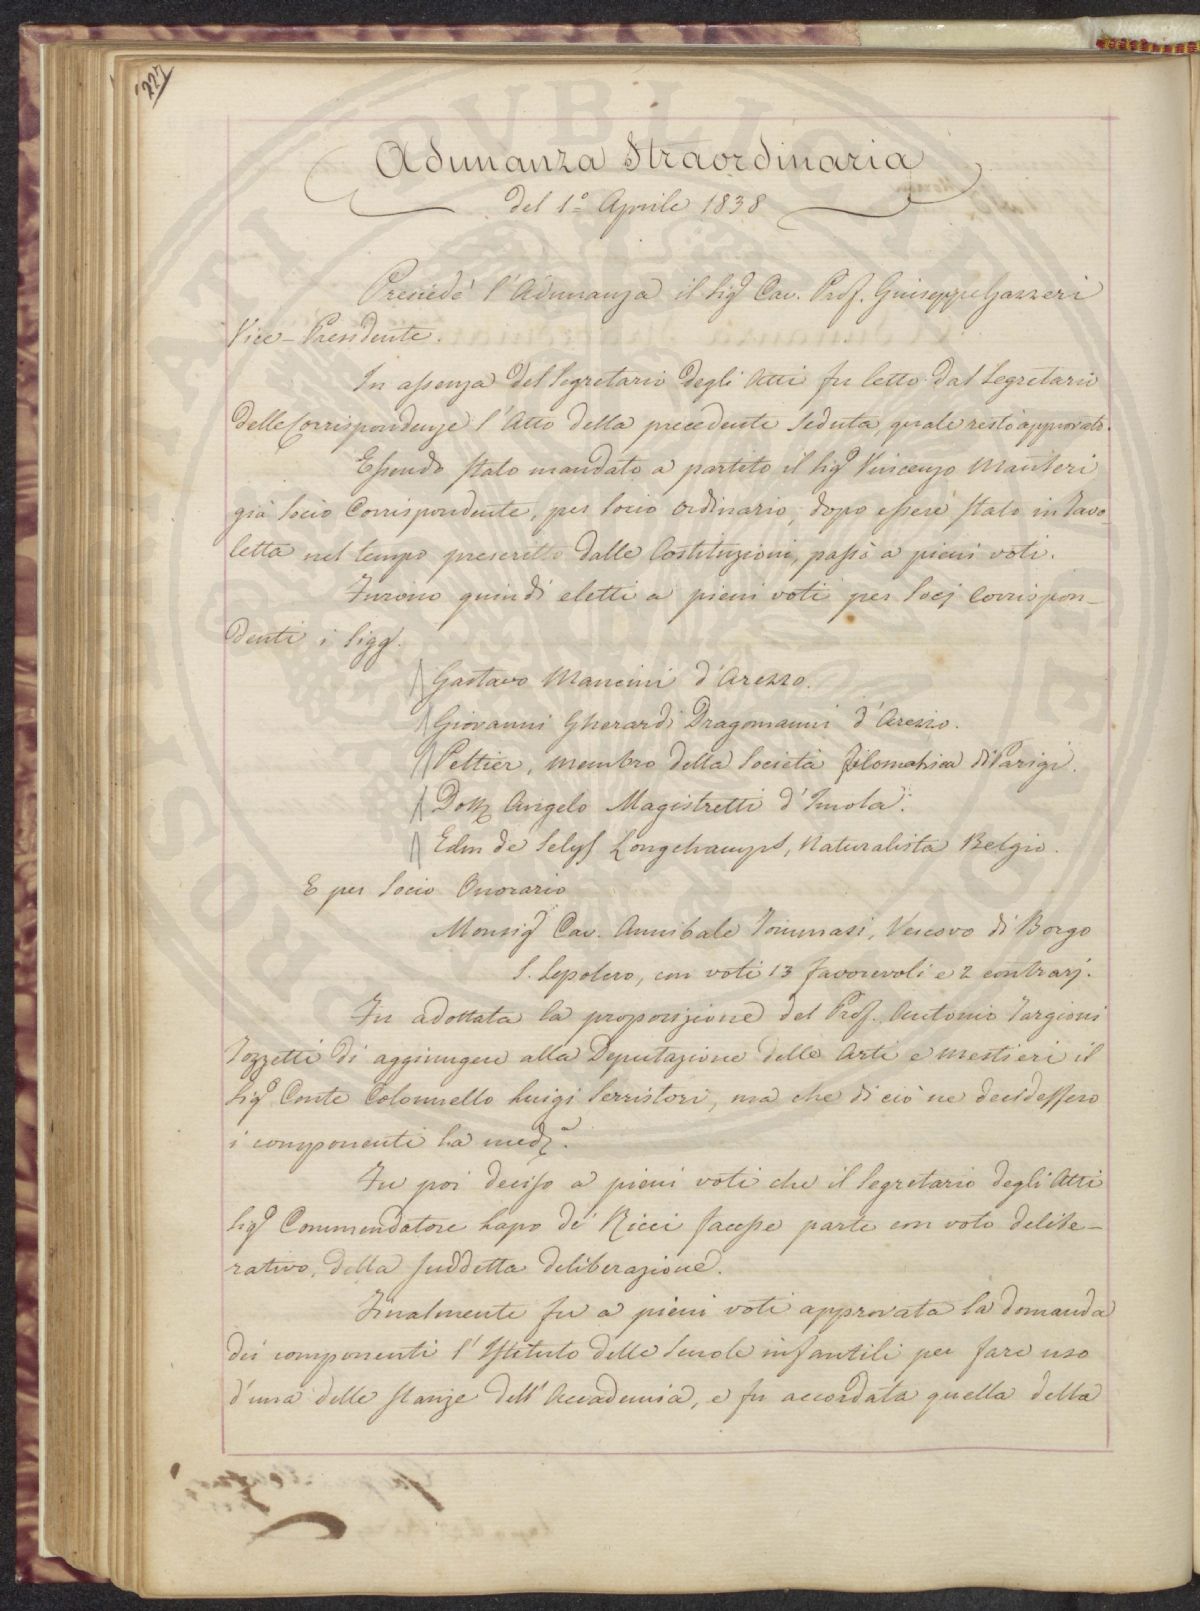 227
Adunanza Straordinaria
del 1º Aprile 1838
Presiedé l'Adunanza il Sigr Cav. Prof. Giuseppe Gazzeri
Vice-Presidente.
In assenza del Segretario degli Atti fu letto dal Segretario
delle Corrispondenze l'Atto della precedente Seduta, quale restò approvato.
Essendo stato mandato a partito il Sigr Vincenzo Manteri
già Socio Corrispondente, per Socio Ordinario, dopo essere stato in Tavo-
letta nel tempo prescritto dalle Costituzioni, passò a pieni voti.
Furono quindi eletti a pieni voti per Socj Corrispon-
denti i Sigg.
Gastavo Mancini d'Arezzo.
Giovanni Gherardi Dragomanni d'Arezzo.
Peltier, membro della Società filomatica di Parigi.
Dottr Angelo Magistretti d'Imola.
Edm de Selys Longchamps, Naturalista Belgio.
E per Socio Onorario
Monsigr Cav. Annibale Tommasi, Vescovo di Borgo
S. Sepolcro, con voti 13 favorevoli e 2 contrarj.
Fu adottata la proposizione del Prof. Antonio Targioni
Tozzetti di aggiungere alla Deputazione delle Arti e mestieri il
Sigr Conte Colonnello Luigi Serristori, ma che di ciò ne decidessero
i componenti la meda.
Fu poi deciso a pieni voti che il Segretario degli Atti
Sigr Commendatore Lapo de' Ricci facesse parte con voto delibe-
rativo, della suddetta deliberazione.
Finalmente fu a pieni voti approvata la domanda
dei componenti l'Istituto delle Scuole infantili per fare uso
d'una delle stanze dell'Accademia, e fu accordata quella della